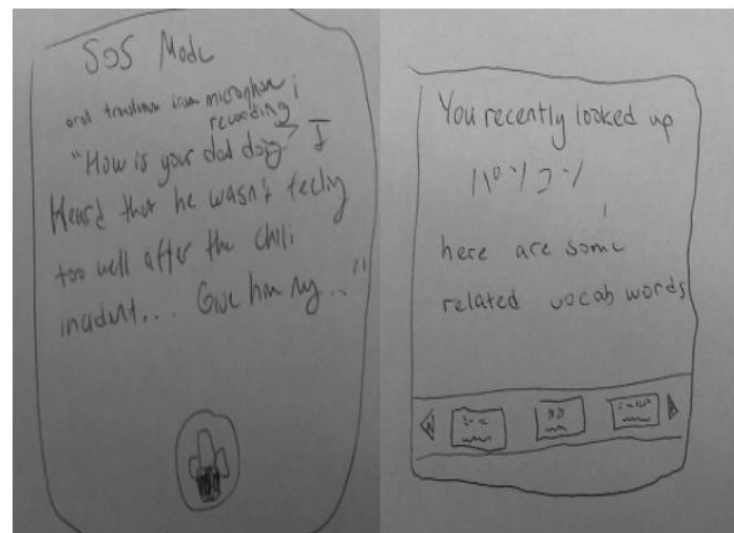 SOS Mode
oral translation from microphone
recording
"How is your dad doing? I
Heard that he wasn't feeling
too well after the chili
incident... Give him my..."
You recently looked up
パソコン
here are some
related vocab words